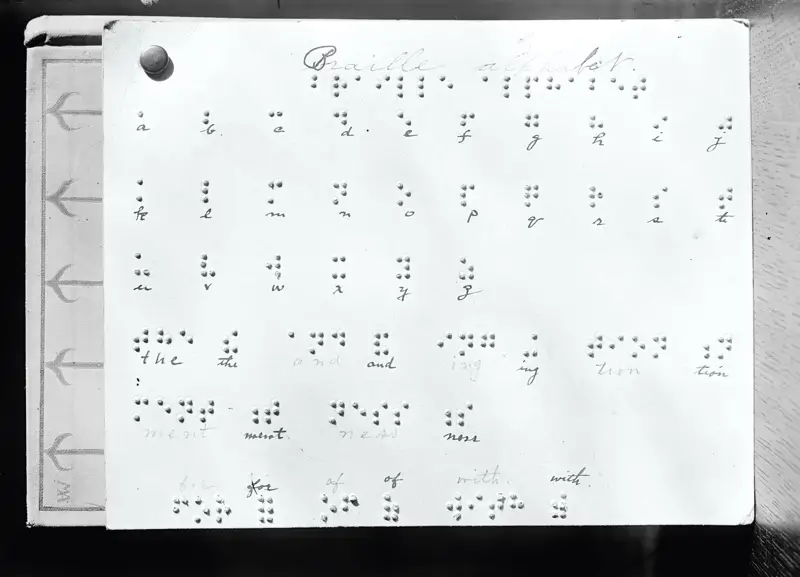 Braille alphabet.
⠃⠗⠁⠊⠇⠇⠑ ⠁⠇⠏⠓⠁⠃⠑⠞
a b c d e f g h i j
k l m n o p q r s t
u v w x y z
the the and and ing ing tion tion
ment ment ness ness
for for of of with with